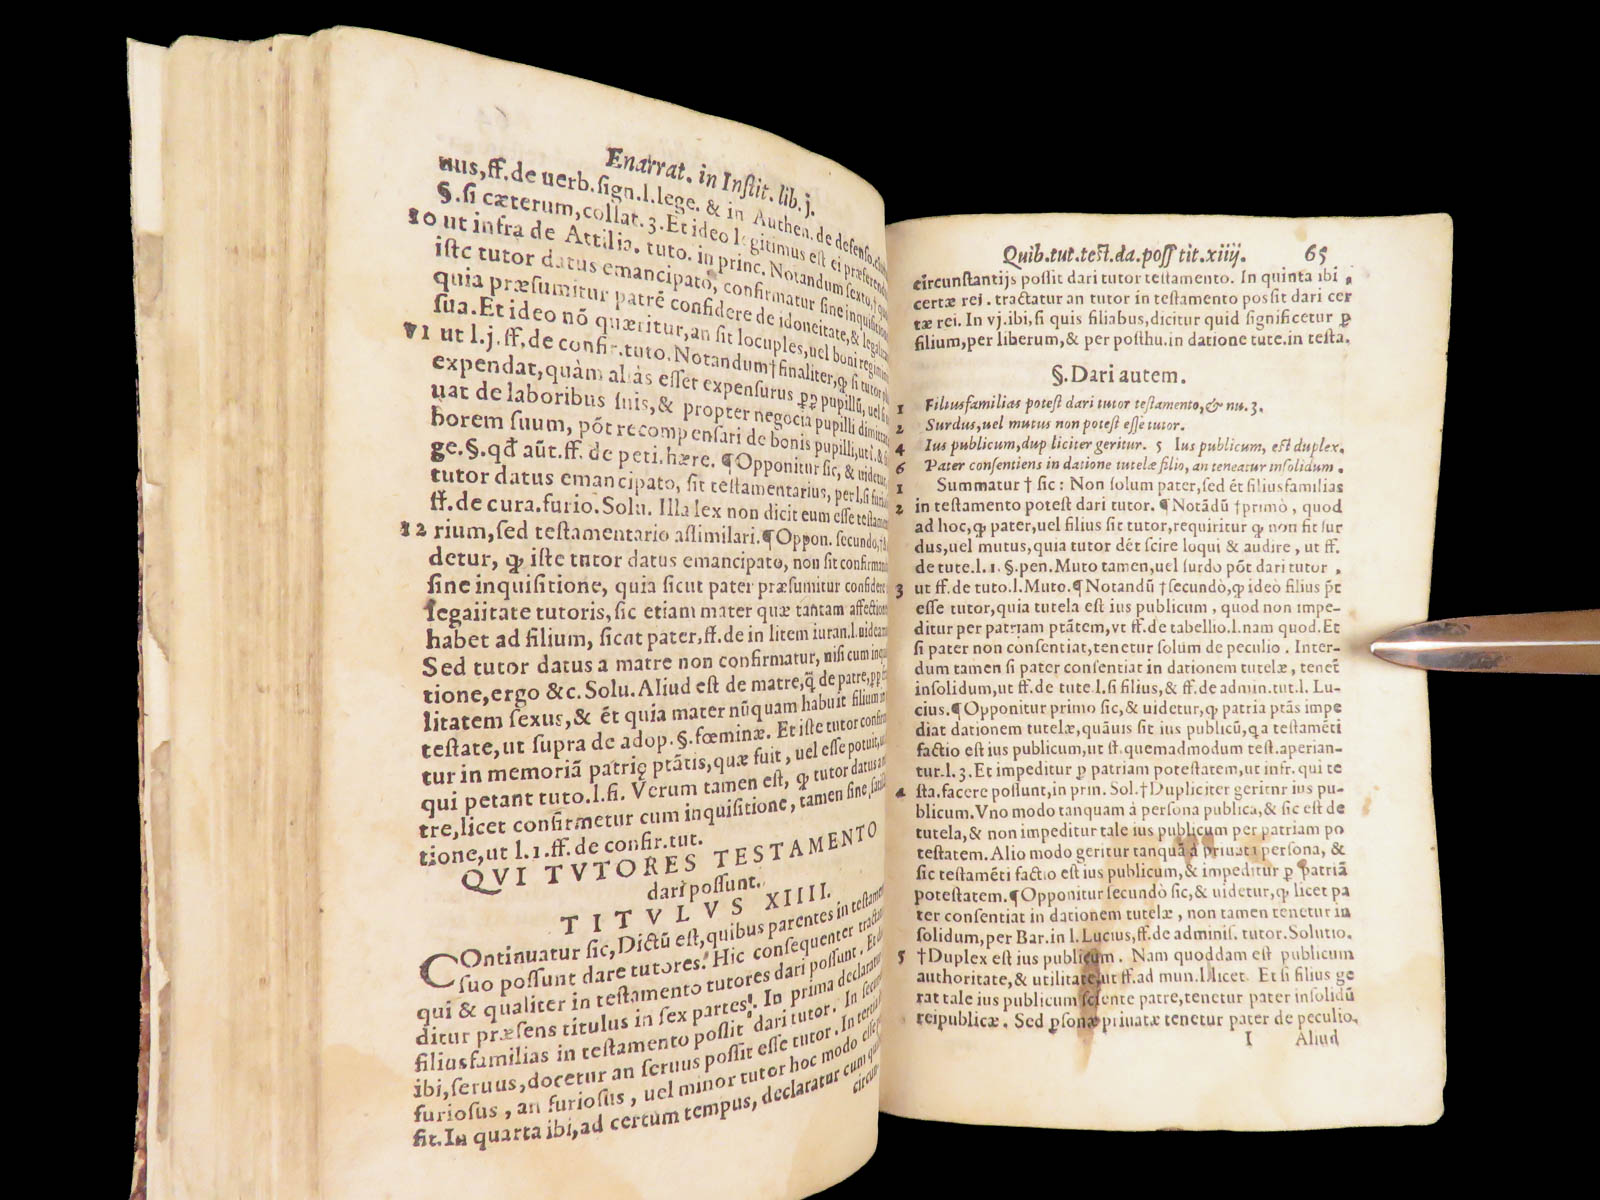 Enarrat. in Instit. lib. j.
nus, ff. de uerb. sign. l. lege. & in Authen. de defenso.
§. si cæterum, collat. 3. Et ideo legitimus est ei præferend
10 ut infra de Attilia. tuto. in princ. Notandum sexto, †
iste tutor datus emancipato, confirmatur sine inquisitione
quia præsumitur patrē confidere de idoneitate, & legalit
sua. Et ideo nō quæritur, an sit locuples, uel boni regimini
VI ut l. j. ff. de confir. tuto. Notandum † finaliter, ꝙ si tutor
expendat, quàm aliàs esset expensurus ꝓpꝑ pupillū, uel si
uat de laboribus suis, & propter negocia pupilli dimittat
borem suum, pōt recompensari de bonis pupilli, ut l. & si
ge. §. qđ aūt. ff. de peti. hære. ¶ Opponitur sic, & uidetur
tutor datus emancipato, sit testamentarius, per l. si furi
ff. de cura. furio. Solu. Illa lex non dicit eum esse testamen
12 rium, sed testamentario assimilari. ¶ Oppon. secundo, †
detur, ꝙ iste tutor datus emancipato, non sit confirmand
sine inquisitione, quia sicut pater præsumitur confidere
legalitate tutoris, sic etiam mater quæ tantam affection
habet ad filium, sicut pater, ff. de in litem iuran. l. uideam
Sed tutor datus a matre non confirmatur, nisi cum inqui
tione, ergo &c. Solu. Aliud est de matre, q̄ de patre,
litatem sexus, & ēt quia mater nūquam habuit filium in
testate, ut supra de adop. §. fœminæ. Et iste tutor confir
tur in memoriā patrię ptātis, quæ fuit, uel esse potuit,
qui petant tuto. l. fi. Verum tamen est, ꝙ tutor datus a
tre, licet confirmetur cum inquisitione, tamen sine
tione, ut l. 1. ff. de confir. tut.
QVI TVTORES TESTAMENTO
dari possunt.
TITVLVS XIIII.
COntinuatur sic, Dictū est, quibus parentes in testamen
suo possunt dare tutores. Hic consequenter tractat
qui & qualiter in testamento tutores dari possunt. Et
ditur præsens titulus in sex partes. In prima declaratur
filiusfamilias in testamento possit dari tutor. In secun
ibi, seruus, docetur an seruus possit esse tutor. In tertia
furiosus, an furiosus, uel minor tutor hoc modo esse
sit. In quarta ibi, ad certum tempus, declaratur cum
circun-
Quib. tut. test. da. poss tit. xiiij. 65
circunstantijs possit dari tutor testamento. In quinta ibi,
certæ rei. tractatur an tutor in testamento possit dari cer
tæ rei. In vj. ibi, si quis filiabus, dicitur quid significetur ꝑ
filium, per liberum, & per posthu. in datione tute. in testa.
§. Dari autem.
1 Filiusfamilias potest dari tutor testamento, & nu. 3.
2 Surdus, uel mutus non potest esse tutor.
4 Ius publicum, dupliciter geritur. 5 Ius publicum, est duplex.
6 Pater consentiens in datione tutelæ filio, an teneatur insolidum.
1 Summatur † sic: Non solum pater, sed ēt filiusfamilias
2 in testamento potest dari tutor. ¶ Notādū † primò, quod
ad hoc, ꝙ pater, uel filius sit tutor, requiritur ꝙ non sit sur
dus, uel mutus, quia tutor dēt scire loqui & audire, ut ff.
de tute. l. 1. §. pen. Muto tamen, uel surdo pōt dari tutor,
3 ut ff. de tuto. l. Muto. ¶ Notandū † secundò, ꝙ ideò filius pōt
esse tutor, quia tutela est ius publicum, quod non impe-
ditur per patriam ptātem, vt ff. de tabellio. l. nam quod. Et
si pater non consentiat, tenetur solum de peculio. Inter-
dum tamen si pater consentiat in dationem tutelæ, tenet
insolidum, ut ff. de tute. l. si filius, & ff. de admin. tut. l. Lu-
cius. ¶ Opponitur primo sic, & uidetur, ꝙ patria ptās impe
diat dationem tutelæ, quāuis sit ius publicū, q̄a testamēti
factio est ius publicum, ut ff. quemadmodum test. aperian-
tur. l. 3. Et impeditur ꝑ patriam potestatem, ut infr. qui te
4 sta. facere possunt, in prin. Sol. † Dupliciter geritur ius pu-
blicum. Vno modo tanquam à persona publica, & sic est de
tutela, & non impeditur tale ius publicum per patriam po
testatem. Alio modo geritur tanquā à priuata persona, &
sic testamēti factio est ius publicum, & impeditur ꝑ patriā
potestatem. ¶ Opponitur secundò sic, & uidetur, ꝙ licet pa
ter consentiat in dationem tutelæ, non tamen tenetur in
solidum, per Bar. in l. Lucius, ff. de adminis. tutor. Solutio.
5 † Duplex est ius publicum. Nam quoddam est publicum
authoritate, & utilitate, ut ff. ad mun. l. licet. Et si filius ge
rat tale ius publicum sciente patre, tenetur pater insolidū
reipublicæ. Sed ꝑsonæ priuatæ tenetur pater de peculio.
I Aliud